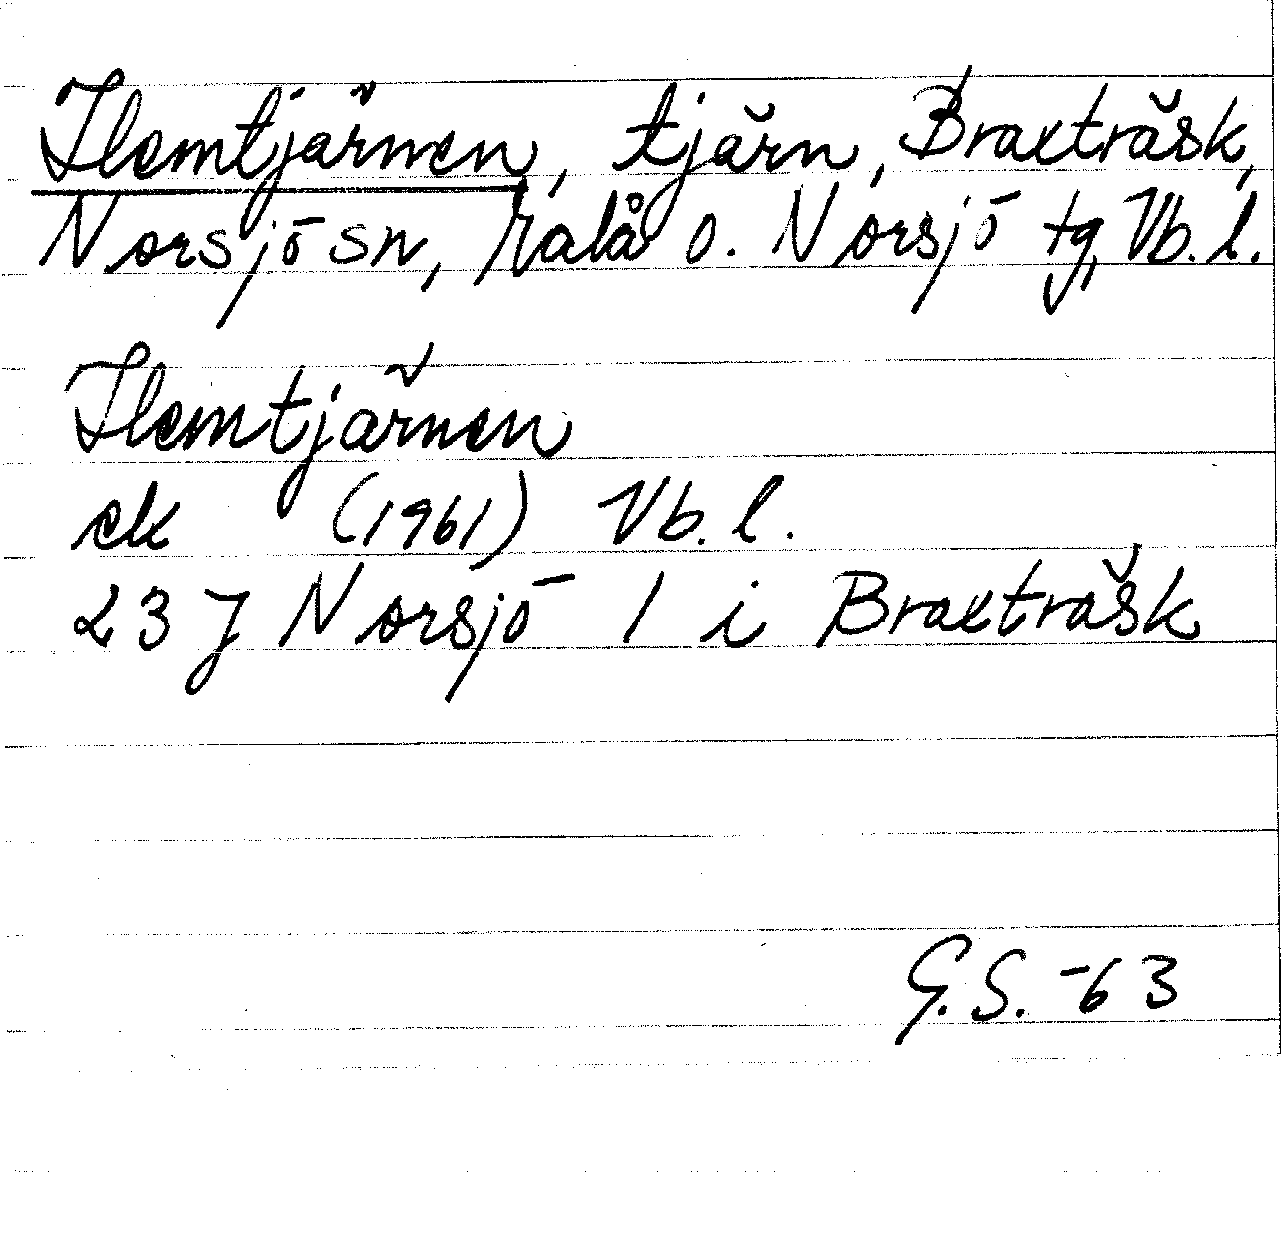 Ilemtjärnen, tjärn, Braxträsk,
Norsjö sn, Malå o. Norsjö tg, Vb. l.
Ilemtjärnen
ek (1961) Vb. l.
23 J Norsjö 1 i Braxträsk
G.S. -63